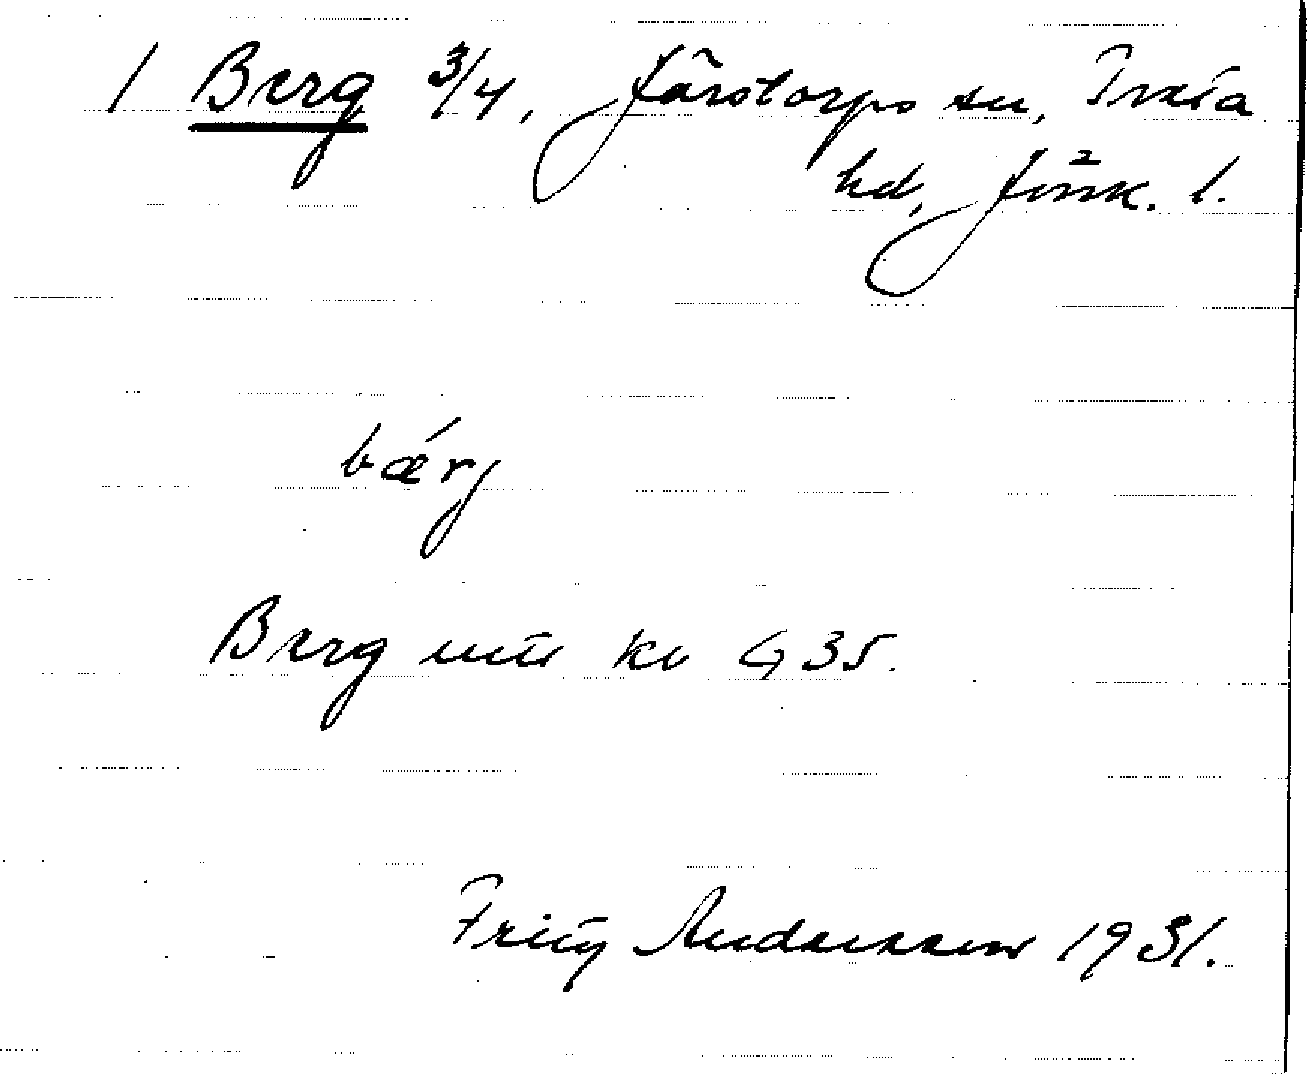 1 Berg 3/4, Järstorps sn, Tveta
hd, Jönk. l.
bǽrj
Berg utr kv G 35.
Fritz Andersson 1931.